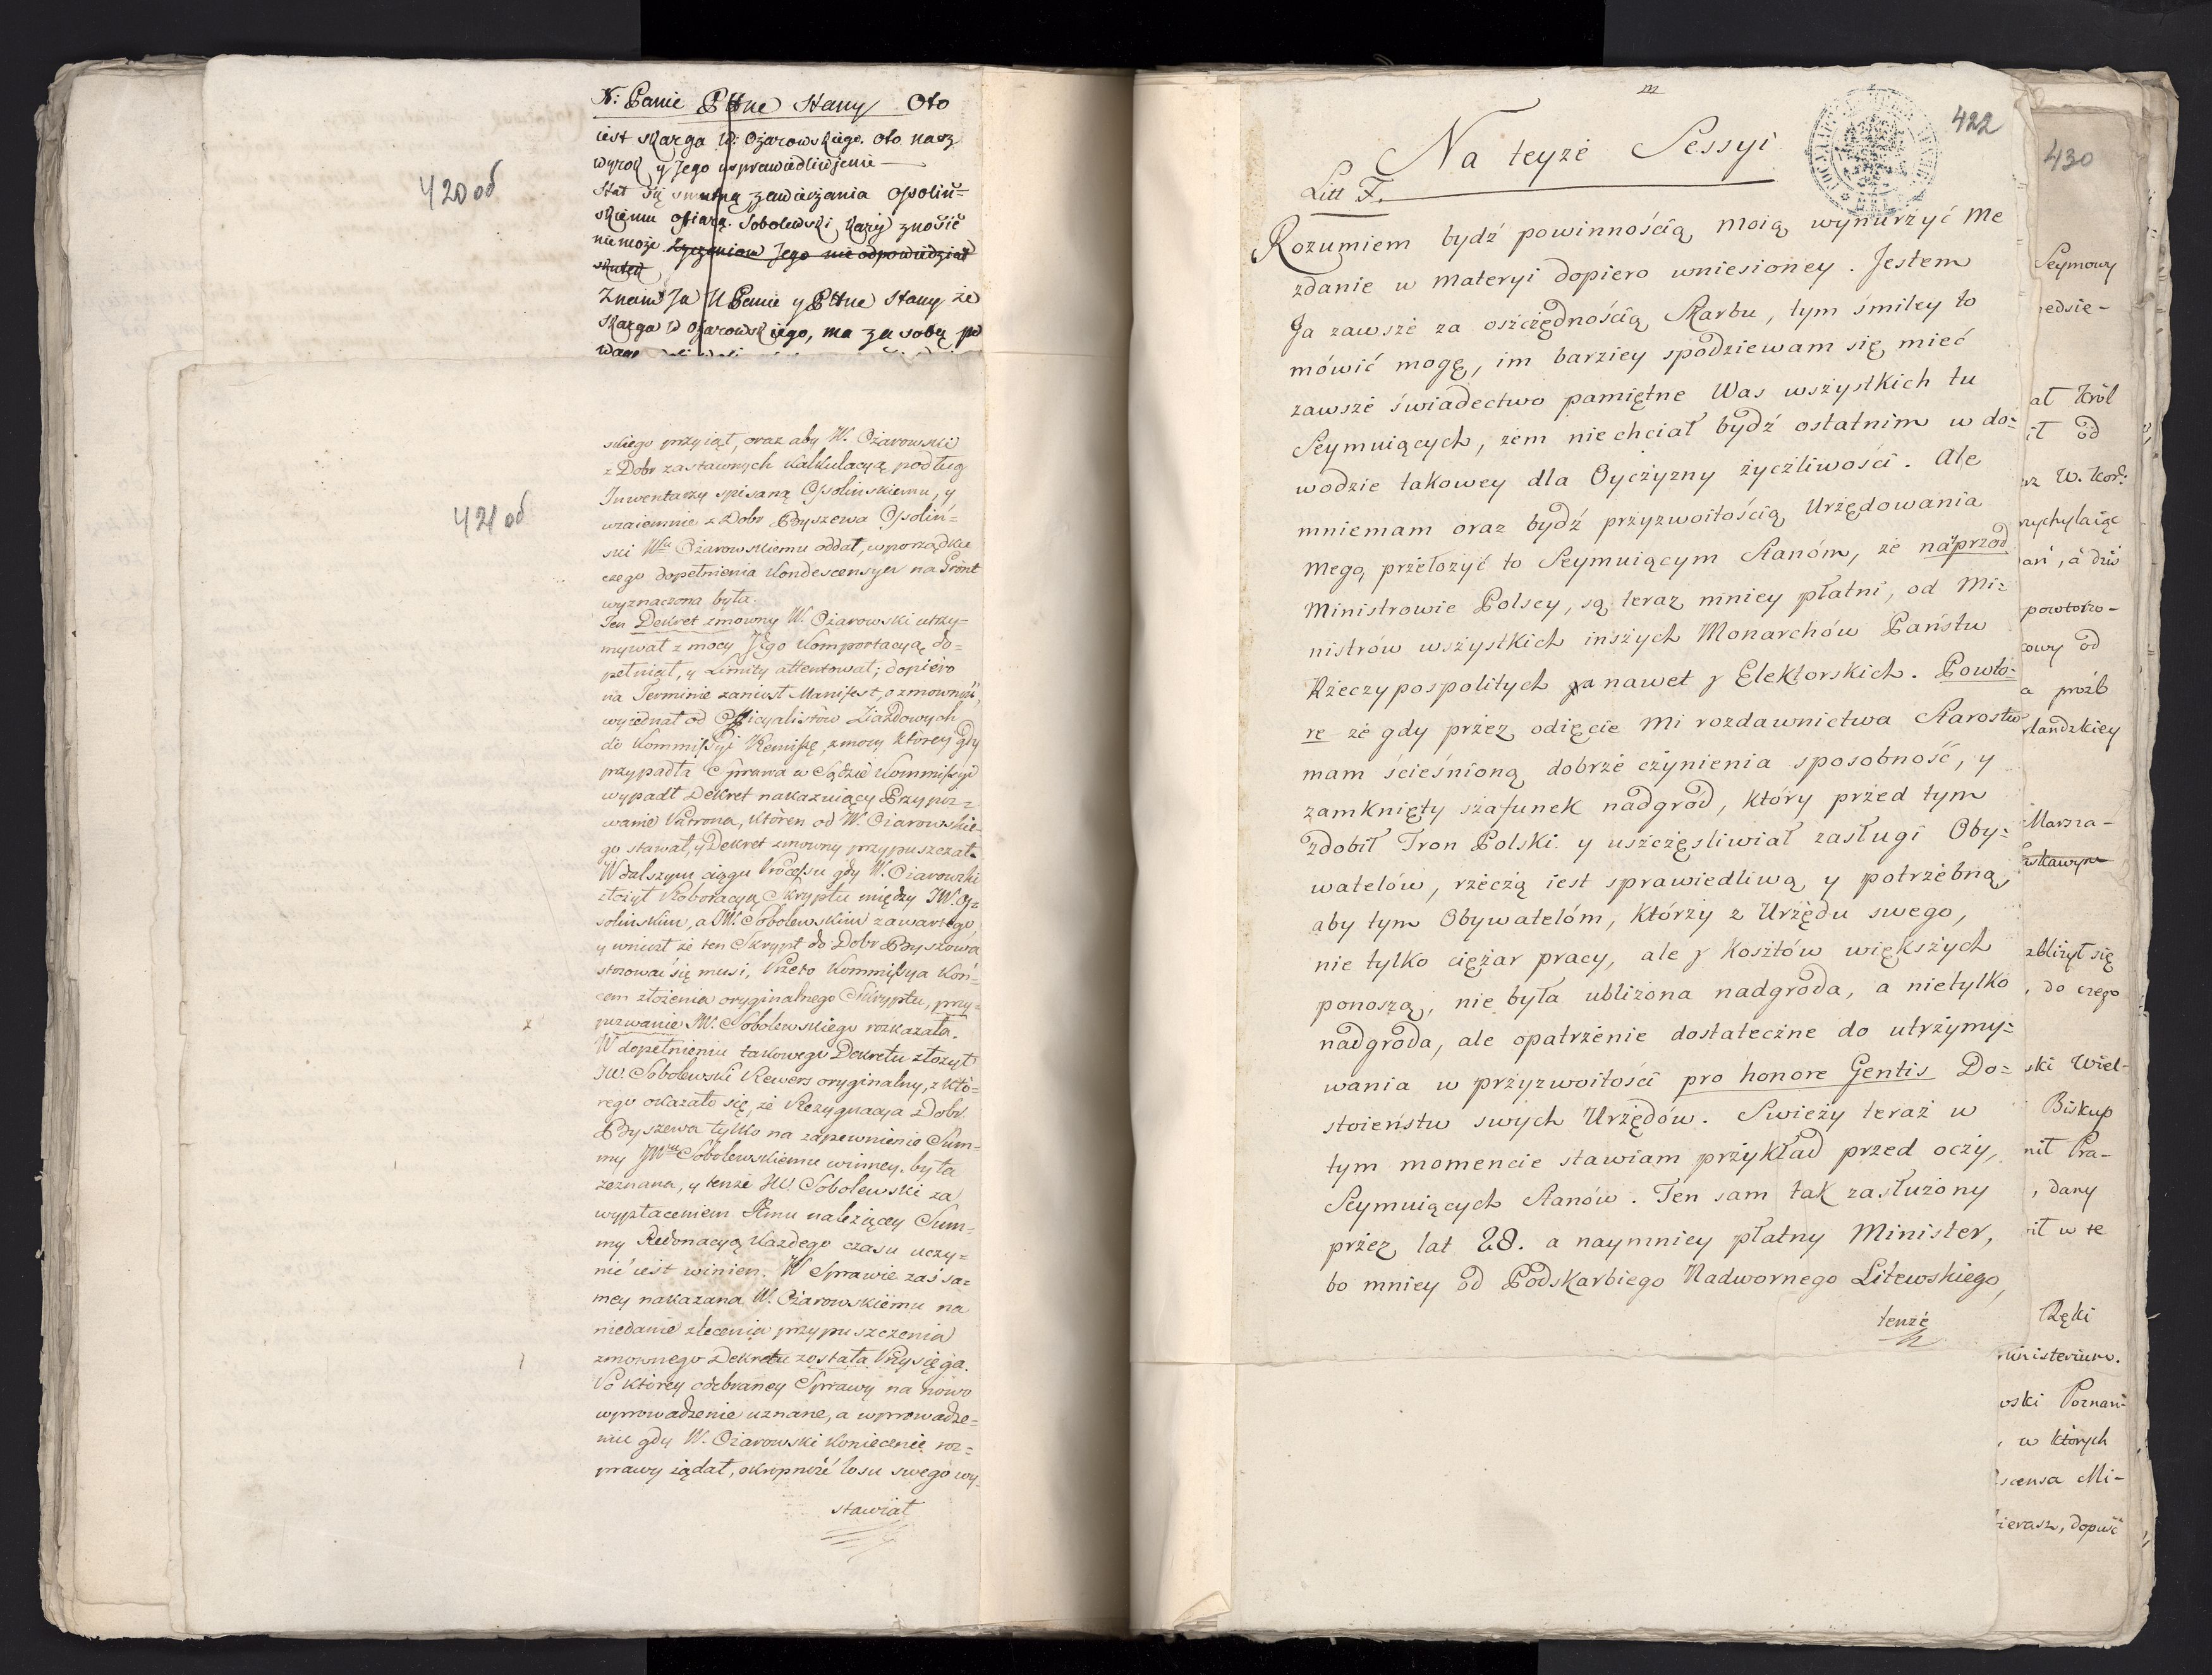 N: Panie PHne Stany Oto
iest skarga W: Ożarowskiego. Oto nasz
wyrok y Jego usprawiedliwienie —
Stał się smutną zawierzania Ossoliń=
skiemu ofiarą. Sobolewski kary znosić
nie może Zyczeniom Jego nie odpowiedział
skutek
Znam Ja N Panie y PHne Stany że
Skarga W Ożarowskiego, ma za sobą po
420 об
skiego przyiął, oraz aby W. Ożarowski
z Dobr zastawnych Kalkulacyą podług
Inwentarzy spisaną Ossolinskiemu, y
wzaiemnie z Dobr Bdyszewa Ossoliń=
ski Wmu Ożarowskiemu oddał, w porządku
czego dopełnienia Kondescensya na Grónt
wyznaczona była.
Ten Dekret zmowny W. Ożarowski utrzy=
mywał z mocy Jego Komportacyą do=
pełniał, y Limity attentował; dopiéro
na Terminie zaniosł Manifest o zmowność,
wyiednał od Officyalistów Ziazdowych
do Kommissyi Remissę, z mocy ktorey gdy
przypadła Sprawa w Sądzie Kommissyi
wypadł Dekret nakazuiący Przypoz=
wanie Patrona, ktören od W. Ożarowskie=
go stawał, y Dekret zmowny przypuszczał.
W dalszym ciągu Processu gdy W. Ożarowski
złożył Roboracyą Skryptu między JW. Os=
solinskim, a JW. Sobolewskim zawartego,
y wniosł że ten Skrypt do Dobr Bdyszewa
stosować się musi, Przeto Kommissya Koń=
cem złożenia oryginalnego Skryptu, przy=
pozwanie JW. Sobolewskiego rozkazała.
W dopełnieniu takowego Dekretu złożył
JW. Sobolewski Rewers oryginalny, z któ=
rego okazało się, że Rezygnacya z Dobr
Bdyszewa tylko na zapewnienie Sum=
my JWmu Sobolewskiemu winney, była
zeznana, y tenże JW. Sobolewski za
wypłaceniem Jemu należącey Sum=
my Redonacyą Każdego czasu uczy=
nić iest winien. W Sprawie zaś sa=
mey nakazana W. Ożarowskiemu na
niedanie zlecenia przypuszczenia
zmownego Dekretu została Przysięga.
Po ktorey odebraney Sprawy na nowo
wprowadzenie uznane, a wprowadze=
niu gdy W. Ożarowski koniecznie roz=
prawy żądał, okropność losu swego wy=
stawiał
421 об
422
Na teyże Sessyi
Litt F.
Rozumiem bydź powinnością moią wynurzyć me
zdanie w materyi dopiero wniesioney. Jestem
Ja zawsze za oszczędnością Skarbu, tym śmiley to
mówić mogę, im barziey spodziewam się mieć
zawsze świadectwo pamiętne Was wszystkich tu
Seymuiących, żem nie chciał bydź ostatnim w do=
wodzie takowey dla Oyczyzny życzliwości. Ale
mniemam oraz bydź przyzwoitością Urzędowania
mego, przełożyć to Seymuiącym Stanóm, że naprzod
Ministrowie Polscy, są teraz mniey płatni, od Mi=
nistrów wszystkich inszych Monarchów Państw
Rzeczypospolitych a nawet y Elektorskich. Powtó=
re że gdy przez odięcie mi rozdawnictwa Starostw
mam ścieśnioną dobrze czynienia sposobność, y
zamknięty szafunek nadgród, który przed tym
zdobił Tron Polski y uszczęsliwiał zasługi Oby=
watelów, rzeczą iest sprawiedliwą y potrzebną,
aby tym Obywatelóm, którzy z Urzędu swego,
nie tylko ciężar pracy, ale y kosztów większych
ponoszą, nie była ubliżona nadgroda, a nietylko
nadgroda, ale opatrzenie dostateczne do utrzymy=
wania w przyzwoitości pro honore Gentis Do=
stoieństw swych Urzędów. Swieży teraz w
tym momencie stawiam przykład przed oczy,
Seymuiących Stanów. Ten sam tak zasłużony
przez lat 28. a naymniey płatny Minister,
bo mniey od Podskarbiego Nadwornego Litewskiego,
tenże
430
Seymowy
edsie-
at Król
ił od
W. Kor:
uchylaiąc
ań, a dziś
powtorzo-
owy od
a proźb
landzkiey
Marsza-
askawym
zbliżył się
, do czego
ski Wiel-
Biskup
nił Pra-
, dany
ił w te
Ręki
ministerium.
wski Poznań-
, w których
scensa Mi-
ierasz, dopuść